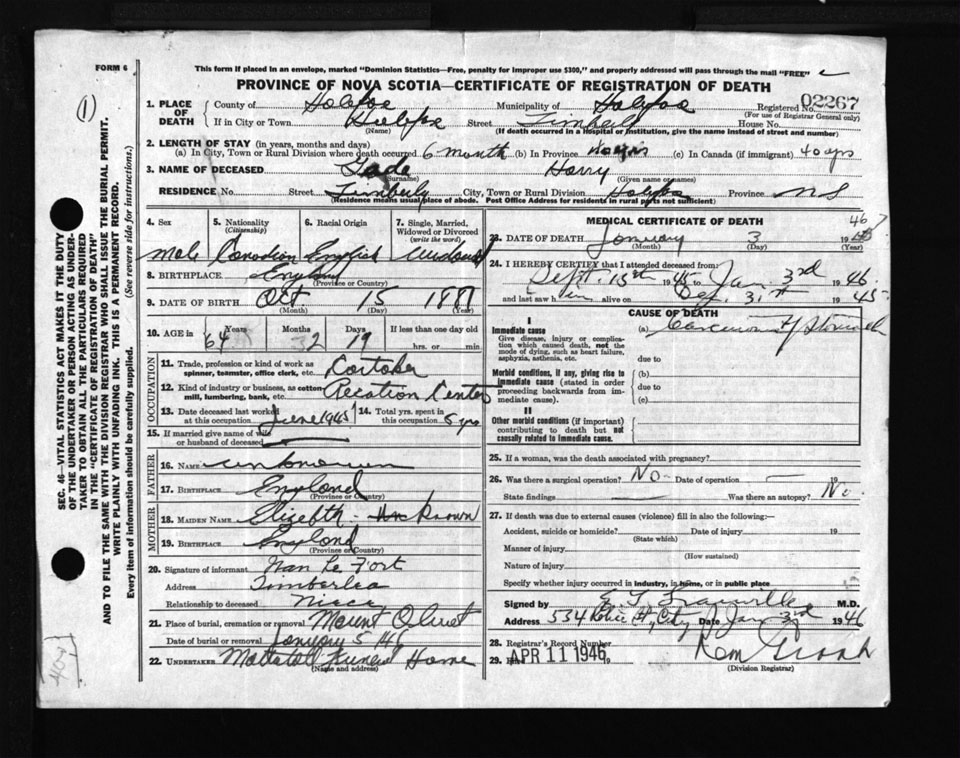 FORM 6
This form if placed in an envelope, marked "Dominion Statistics—Free, penalty for improper use $300," and properly addressed will pass through the mail "FREE"
PROVINCE OF NOVA SCOTIA—CERTIFICATE OF REGISTRATION OF DEATH
(1)
SEC. 46—VITAL STATISTICS ACT MAKES IT THE DUTY
OF THE UNDERTAKER OR PERSON ACTING AS UNDER-
TAKER TO OBTAIN ALL THE PARTICULARS REQUIRED
IN THE "CERTIFICATE OF REGISTRATION OF DEATH"
AND TO FILE THE SAME WITH THE DIVISION REGISTRAR WHO SHALL ISSUE THE BURIAL PERMIT.
WRITE PLAINLY WITH UNFADING INK. THIS IS A PERMANENT RECORD.
Every item of information should be carefully supplied. (See reverse side for instructions.)
1. PLACE OF DEATH County of Halifax Municipality of Halifax Registered No. 02267
(For use of Registrar General only)
If in City or Town Halifax Street House No.
(Name) (If death occurred in a Hospital or Institution, give the name instead of street and number)
2. LENGTH OF STAY (in years, months and days)
(a) In City, Town or Rural Division where death occurred 6 month (b) In Province (c) In Canada (if immigrant) 40 yrs
3. NAME OF DECEASED Harry
Surname (Given name or names)
RESIDENCE No. Street Timberly City, Town or Rural Division Halifax Province N S
(Residence means usual place of abode. Post Office Address for residents in rural parts not sufficient)
4. Sex 5. Nationality (Citizenship) 6. Racial Origin 7. Single, Married, Widowed or Divorced (write the word)
Male Canadian English
8. BIRTHPLACE England
(Province or Country)
9. DATE OF BIRTH Oct 15 1881
(Month) (Day) (Year)
10. AGE in Years Months Days If less than one day
64 2 19 hrs. or min.
OCCUPATION
11. Trade, profession or kind of work as spinner, teamster, office clerk, etc.
12. Kind of industry or business, as cotton mill, lumbering, bank, etc. Recation Center
13. Date deceased last worked at this occupation June 1945 14. Total yrs. spent in this occupation 5 yrs
15. If married give name of wife or husband of deceased
FATHER
16. NAME unknown
17. BIRTHPLACE England
(Province or Country)
MOTHER
18. MAIDEN NAME Elizebth Brown
19. BIRTHPLACE England
(Province or Country)
20. Signature of informant Le Fort
Address Timberlea
Relationship to deceased Niece
21. Place of burial, cremation or removal Mount Olivet
Date of burial or removal January 5 46
22. UNDERTAKER Mattatall Funeral Home
(Name and address)
MEDICAL CERTIFICATE OF DEATH
23. DATE OF DEATH January 3 19 46
(Month) (Day) (Year)
24. I HEREBY CERTIFY that I attended deceased from:
Sept. 15th 1945 to Jan. 3rd 1946
and last saw him alive on Dec. 31st 1945
CAUSE OF DEATH
I
Immediate cause (a) Carcinoma of Stomach
Give disease, injury or complication which caused death, not the mode of dying, such as heart failure, asphyxia, asthenia, etc.
due to
Morbid conditions, if any, giving rise to immediate cause (stated in order proceeding backwards from immediate cause).
(b)
due to
(c)
II
Other morbid conditions (if important) contributing to death but not causally related to immediate cause.
25. If a woman, was the death associated with pregnancy?
26. Was there a surgical operation? No Date of operation 19
State findings Was there an autopsy? No
27. If death was due to external causes (violence) fill in also the following:—
Accident, suicide or homicide? Date of injury 19
(State which)
Manner of injury
(How sustained)
Nature of injury
Specify whether injury occurred in industry, in home, or in public place
Signed by M.D.
Address 534 City Date Jan 3rd 1946
28. Registrar's Record Number
29. APR 11 1946 19
(Division Registrar)